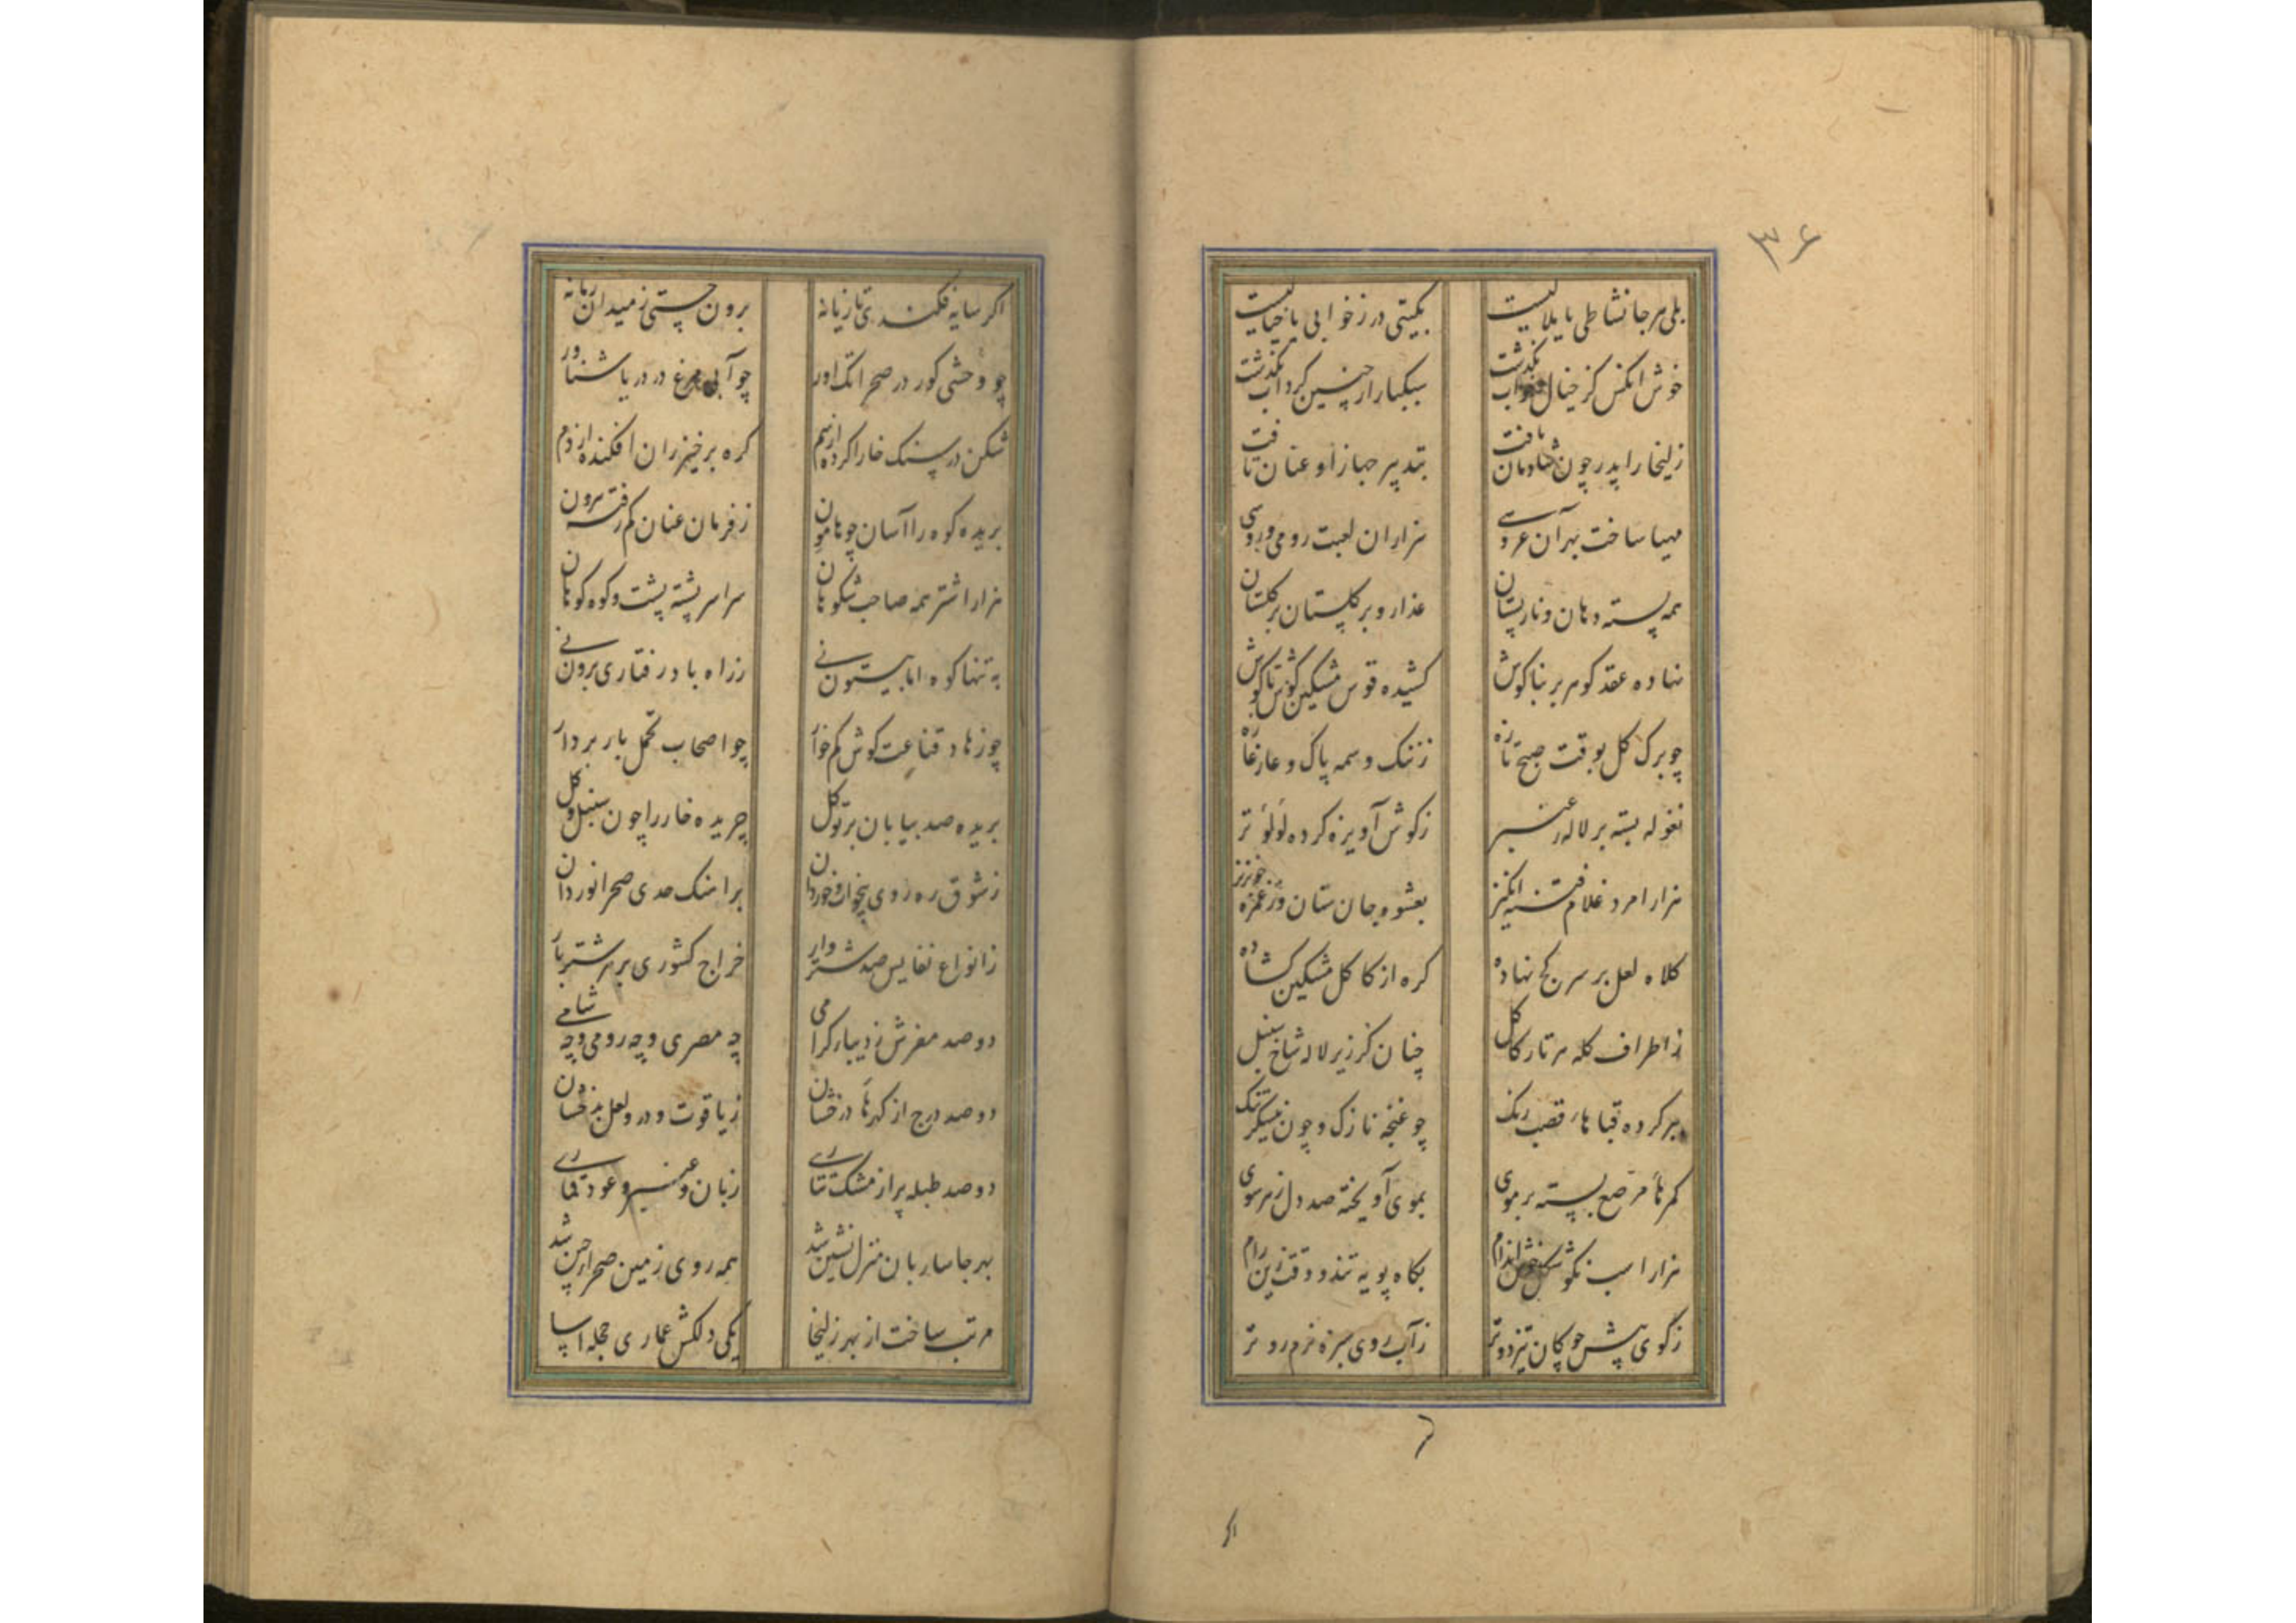 ۳۶
بلی هر جا نشاطی یا بلائیست بگیتی در ز خوابی یا خیالیست
خوش آنکس کز خیال و خواب بگذشت سبکبار از چنین گرداب بگذشت
زلیخا را پدر چون شادمان یافت بتدبیر جهاز او عنان تافت
مهیا ساخت بهر آن عروسی هزاران لعبت رومی و روسی
همه پسته دهان و نار پستان عذار و بر گلستان بر گلستان
نهاده عقد گوهر بر بناگوش کشیده قوس مشکین گوش تا گوش
چو برگ گل بوقت صبح تازه ز ننگ وسمه پاک و عار غازه
نغوله بسته بر لاله ز عنبر ز گوش آویزه کرده لؤلؤ تر
هزار امرد غلام فتنه انگیز بعشوه جان ستان وز غمزه خونریز
کلاه لعل بر سر کج نهاده گره از کاکل مشکین گشاده
ز اطراف کله هر تار کاکل چنان کز زیر لاله شاخ سنبل
ببر کرده قباهای قصب رنگ چو غنچه نازک و چون نیشکر تنگ
کمرهای مرصع بسته بر موی بموی آویخته صد دل ز هر سوی
هزار اسب نکو شکل خوش اندام بگاه پویه تند و وقت زین رام
ز گوی پیش چوگان تیز دوتر ز آب روی سبزه نرم روتر
اگر
اگر سایه فکندی تازیانه برون جستی ز میدان زمانه
چو وحشی گور در صحرا تک آور چو آبی مرغ در دریا شناور
شکن در سنگ خارا کرده از سم گره بر خیزران افکنده از دم
بریده کوه را آسان چو هامون ز فرمان عنان کم رفته بیرون
هزار اشتر همه صاحب شکوهان سراسر پشته پشت و کوه کوهان
به تنها کوه اما بی ستونی ز راه باد رفتاری برونی
چو زهاد قناعت کوش کم خوار چو اصحاب تحمل بار بردار
بریده صد بیابان بر توکل چریده خار را چون سنبل و گل
ز شوق ره روی بیخواب و خوردان بر آهنگ حدی صحرا نوردان
ز انواع نفایس صد شتروار خراج کشوری بر هر شتر بار
دو صد مفرش ز دیبای گرامی چه مصری و چه رومی و چه شامی
دو صد درج از گهرهای درخشان ز یاقوت و در و لعل بدخشان
دو صد طبله پر از مشک تتاری ز بان و عنبر و عود قماری
بهر جا ساربان منزل نشین شد همه روی زمین صحرای چین شد
مرتب ساخت از بهر زلیخا یکی دلکش عماری حجله آسا